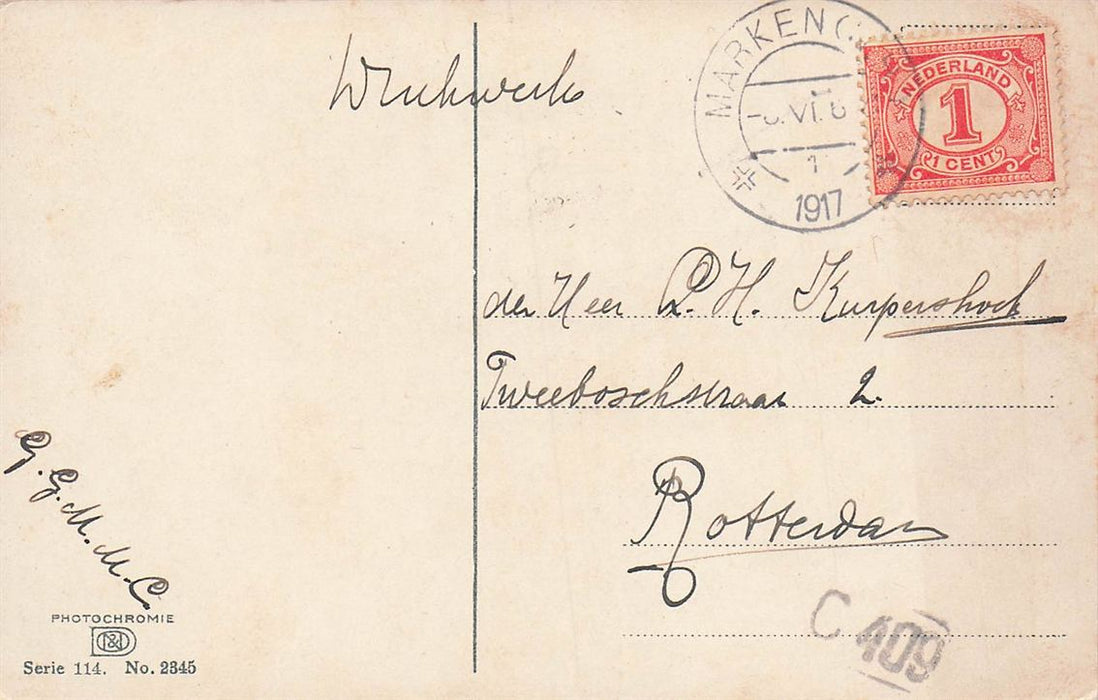 Drukwerk
MARKEN (
VI.
1
1917
NEDERLAND
1
1 CENT
den Heer P. H. Kuypershoek
Tweeboschstraat 2.
Rotterdam
G. G. M. M. C.
PHOTOCHROMIE
D&D
Serie 114. No. 2345
C 409